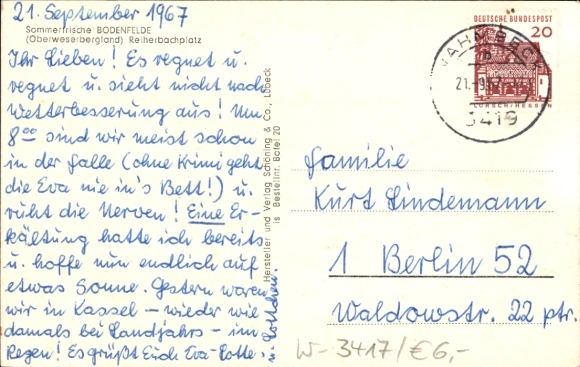 21. September 1967
Sommerfrische BODENFELDE
(Oberweserbergland) Reiherbachplatz
Ihr Lieben! Es regnet u.
regnet u. sieht nicht nach
Wetterbesserung aus! Um
8⁰⁰ sind wir meist schon
in der Falle (ohne Krimi geht
die Eva nie in's Bett!) u.
ruht die Nerven! Eine Er-
kältung hatte ich bereits
u. hoffe nun endlich auf
etwas Sonne. Gestern waren
wir in Kassel – wieder wie
damals bei Landjahrs – im
Regen! Es grüßt Euch Eva-Lotte
u. Lottchen.
Hersteller und Verlag Schöning & Co., Lübeck
Bestellnr. Botel 20
DEUTSCHE BUNDESPOST
20
LORSCH/HESSEN
21.-9.67
3419
Familie
Kurt Lindemann
1 Berlin 52
Waldowstr. 22 ptr.
W- 3417/€6,-